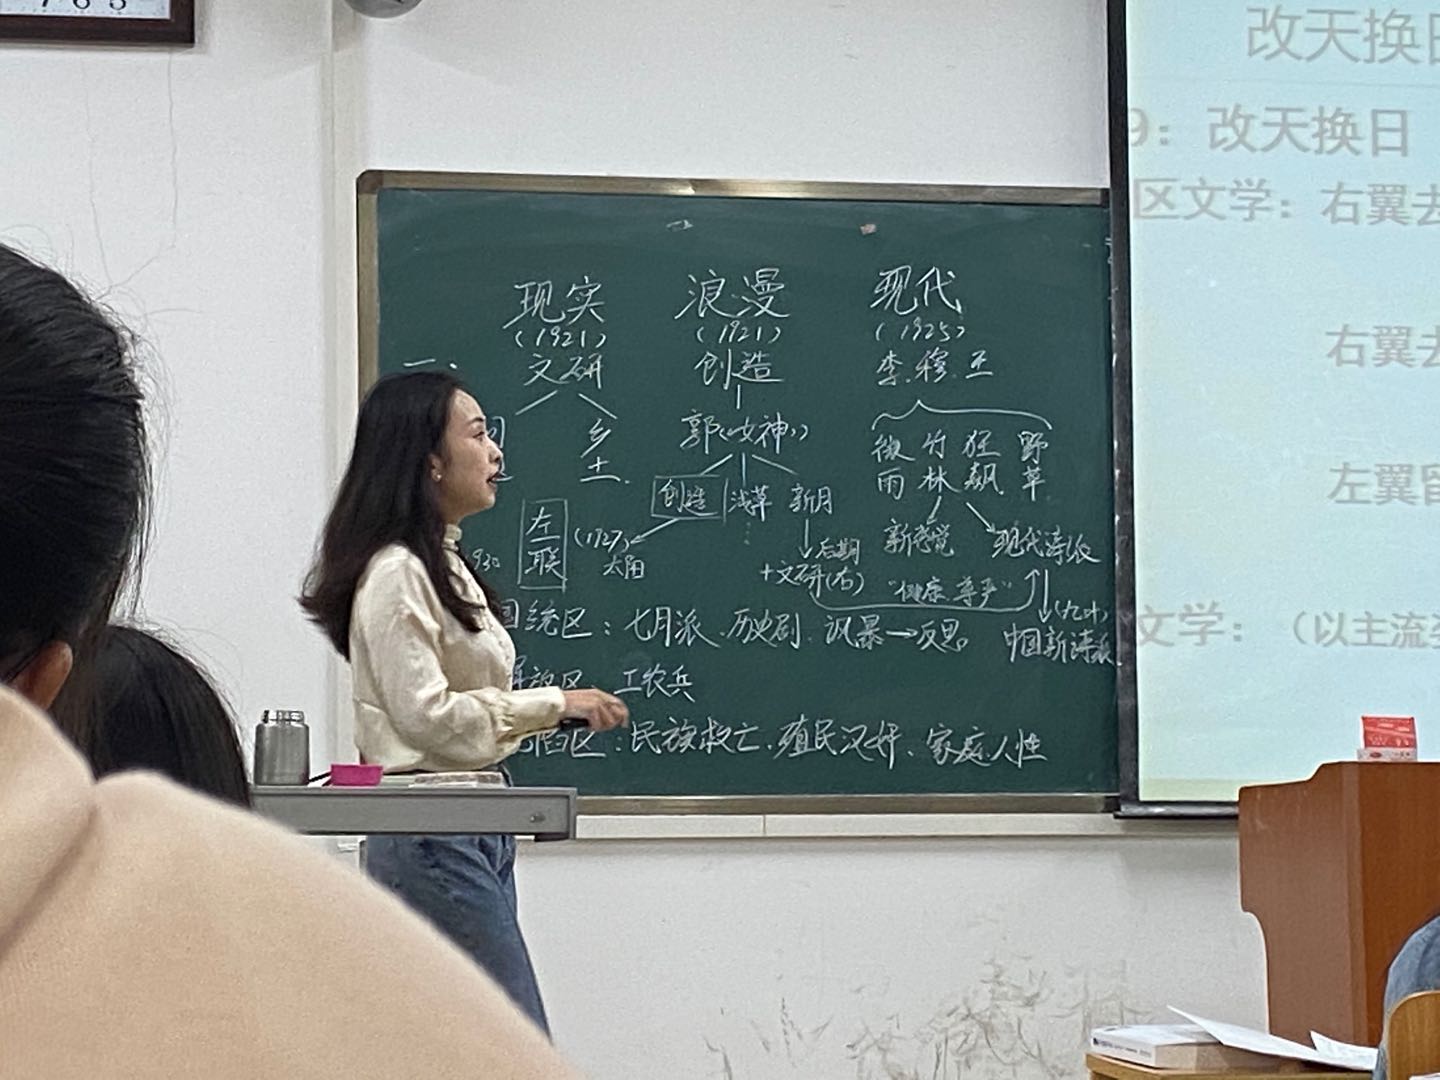 现实 浪漫 现代
(1921) (1921) (1925)
一、 文研 创造 李.穆.王
郭《女神》
乡土 微雨 竹林 狂飙 野草
创造 浅草 新月
左联 (1927) 太阳 后期 新感觉 现代诗派
930 +文研(右) "健康、尊严" (九叶)
国统区：七月派、历史剧、讽暴→反思 中国新诗派
解放区：工农兵
沦陷区：民族救亡、殖民汉奸、家庭、人性
改天换日
9：改天换日
区文学：右翼去
右翼去
左翼留
文学：（以主流